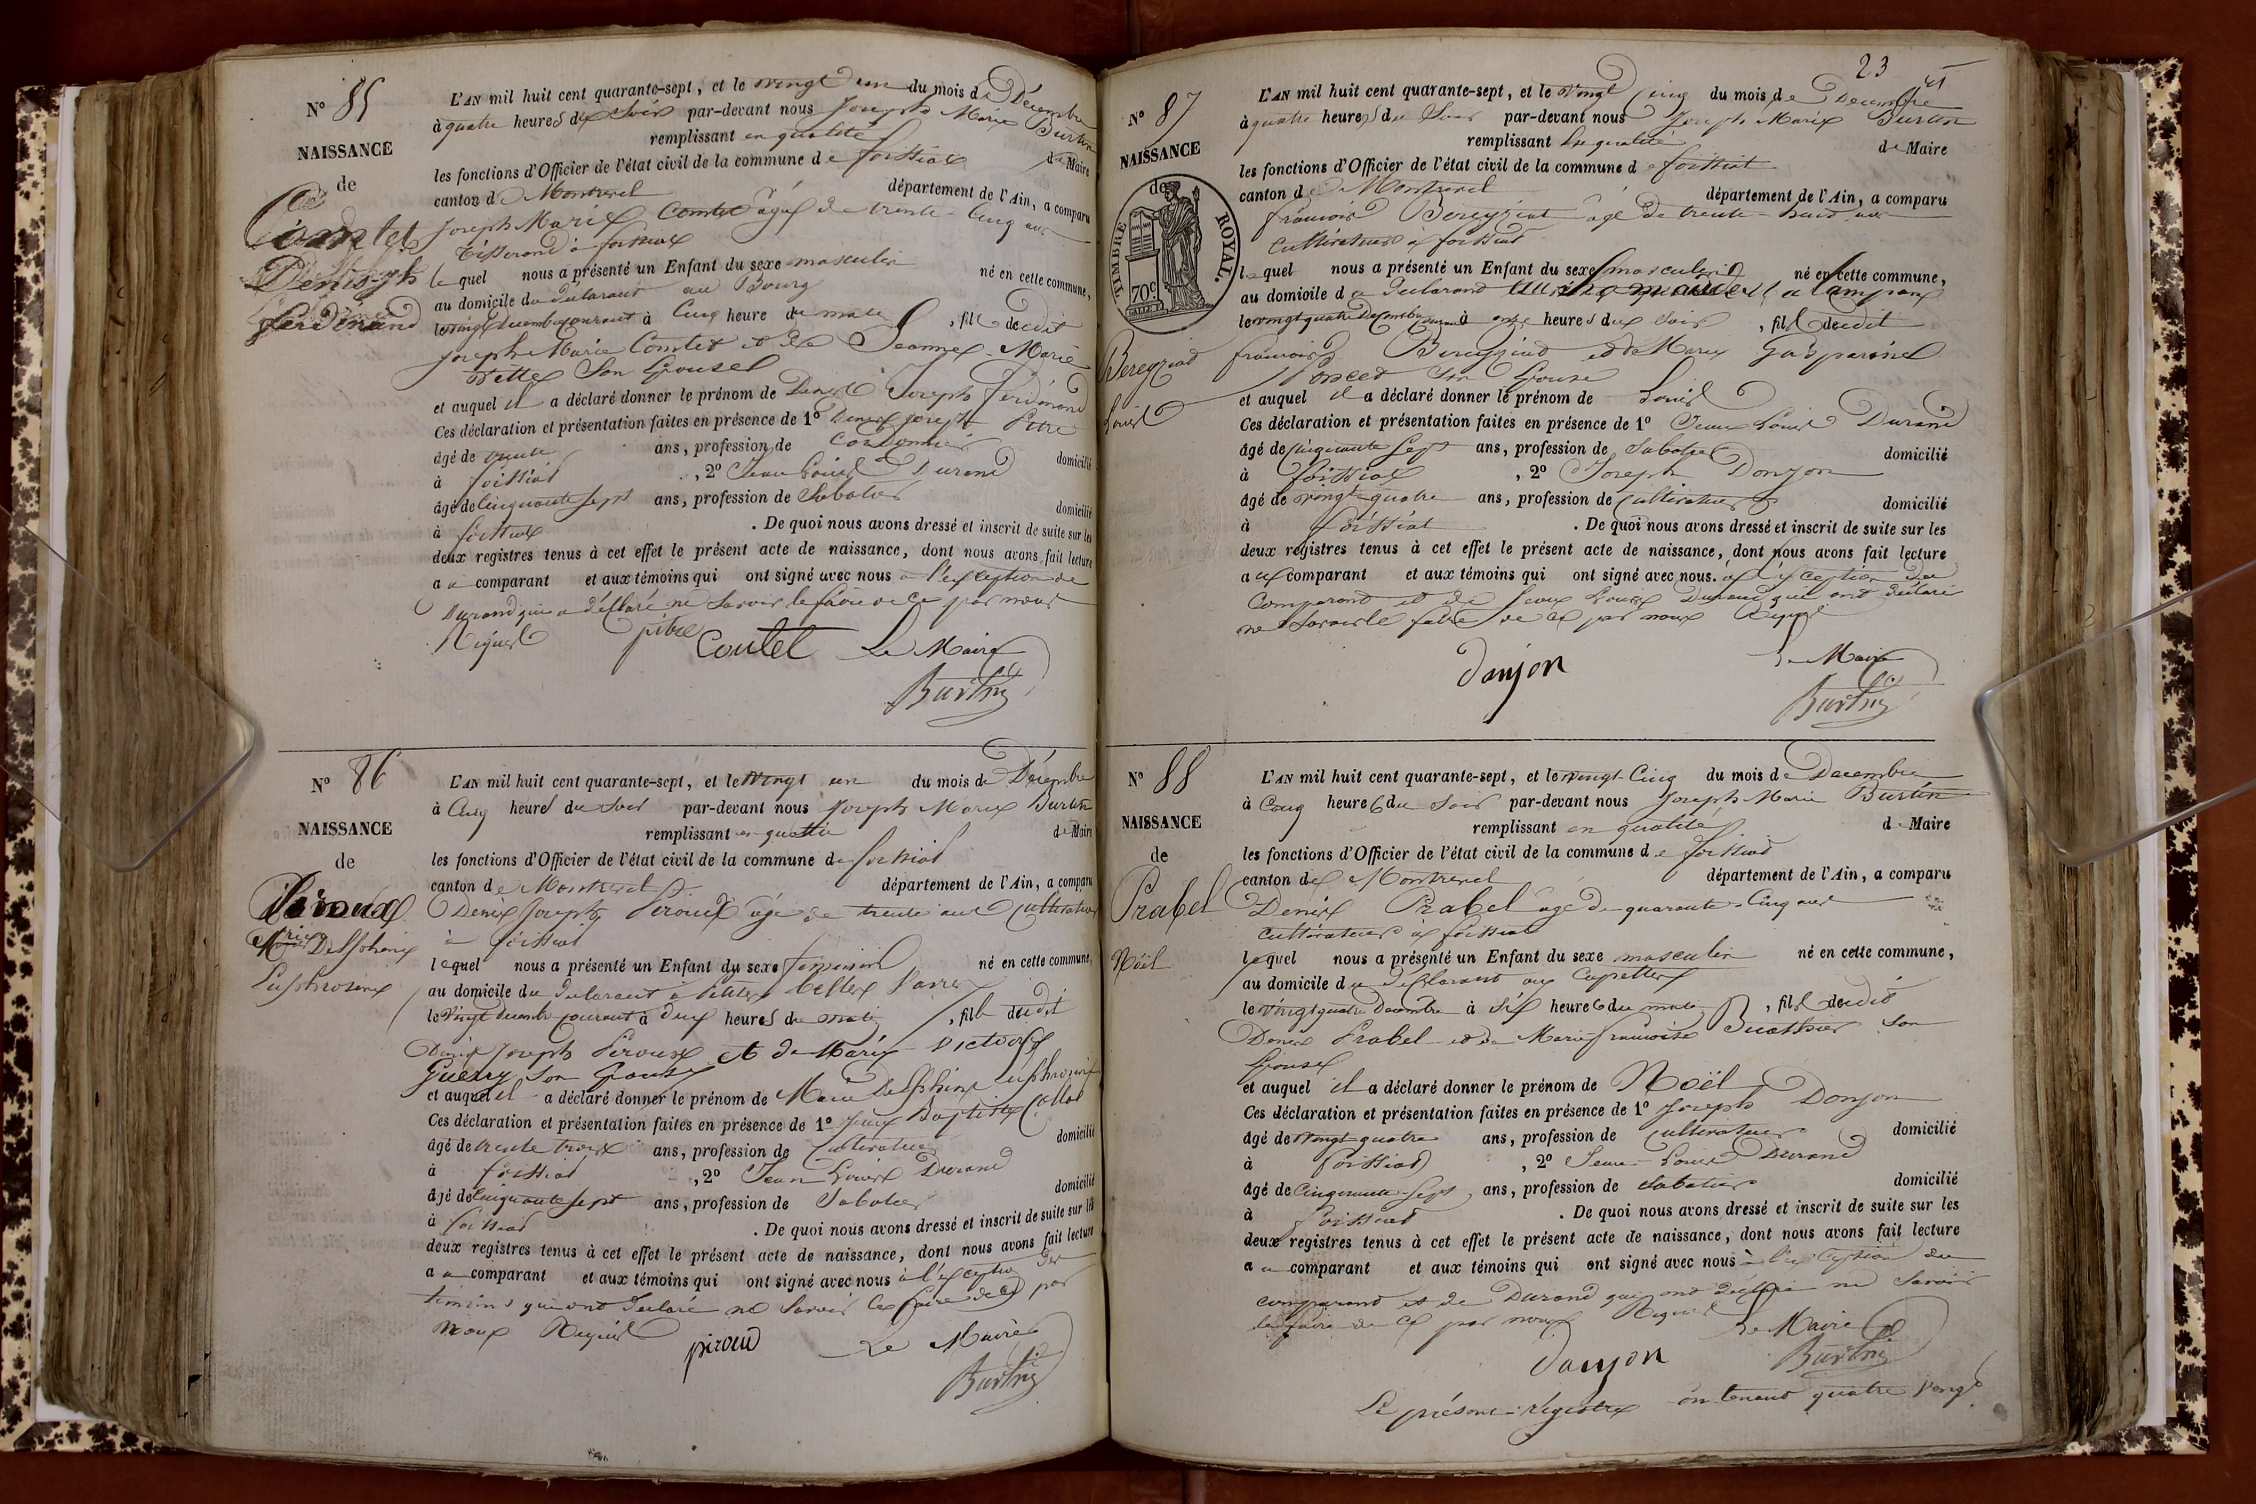 N° 85
NAISSANCE
de
Comtet
Denis Jph
Ferdinand
L'AN mil huit cent quarante-sept, et le vingt un du mois de Décembre
à quatre heures du Soir par-devant nous Joseph Marie Burtin
remplissant en qualité de Maire
les fonctions d'Officier de l'état civil de la commune de foissiat
canton de Montrevel département de l'Ain, a comparu
Joseph Marie Comtet âgé de trente-cinq ans
tisserand à foissiat
lequel nous a présenté un Enfant du sexe masculin né en cette commune,
au domicile du déclarant au Bourg
le vingt décembre courant à Cinq heure du matin, fils dudit
Joseph Marie Comtet et de Jeanne-Marie
son Epouse
et auquel il a déclaré donner le prénom de Denis Joseph Ferdinand
Ces déclaration et présentation faites en présence de 1° Denis Joseph
âgé de ans, profession de Cordonnier domicilié
à foissiat, 2° Jean Louis Durand
âgé de Cinquante sept ans, profession de Sabotier domicilié
à foissiat. De quoi nous avons dressé et inscrit de suite sur les
deux registres tenus à cet effet le présent acte de naissance, dont nous avons fait lecture
au comparant et aux témoins qui ont signé avec nous à l'exception de
Durand qui a déclaré ne savoir le faire de ce par nous
Requis
Contet Le Maire
Burtin
N° 86
NAISSANCE
de
Piroux
Marie Delphine
Euphrosine
L'AN mil huit cent quarante-sept, et le vingt un du mois de Décembre
à Cinq heures du Soir par-devant nous Joseph Marie Burtin
remplissant en qualité de Maire
les fonctions d'Officier de l'état civil de la commune de foissiat
canton de Montrevel département de l'Ain, a comparu
Denis Joseph Piroux âgé de trente ans Cultivateur
à foissiat
lequel nous a présenté un Enfant du sexe féminin né en cette commune,
au domicile du déclarant à
le vingt décembre courant à deux heures du matin, fille dudit
Denis Joseph Piroux et de Marie Victoire
Guerry son Epouse
et auquel il a déclaré donner le prénom de Marie Delphine Euphrosine
Ces déclaration et présentation faites en présence de 1° Jean Baptiste
âgé de trente trois ans, profession de Cultivateur domicilié
à foissiat, 2° Jean Louis Durand
âgé de Cinquante sept ans, profession de Sabotier domicilié
à foissiat. De quoi nous avons dressé et inscrit de suite sur les
deux registres tenus à cet effet le présent acte de naissance, dont nous avons fait lecture
au comparant et aux témoins qui ont signé avec nous à l'exception des
témoins qui ont déclaré ne savoir le faire de ce par
nous Requis
piroud Le Maire
Burtin
23
N° 87
NAISSANCE
de
TIMBRE ROYAL.
70c
Bereyziat
Louis
L'AN mil huit cent quarante-sept, et le vingt Cinq du mois de Décembre
à quatre heures du Soir par-devant nous Joseph Marie Burtin
remplissant en qualité de Maire
les fonctions d'Officier de l'état civil de la commune de foissiat
canton de Montrevel département de l'Ain, a comparu
françois Bereyziat âgé de trente-huit ans
Cultivateur à foissiat
lequel nous a présenté un Enfant du sexe masculin né en cette commune,
au domicile du déclarant
le vingt quatre Décembre courant à onze heures du soir, fils dudit
françois Bereyziat et de Marie Gasparine
Poncet son Epouse
et auquel il a déclaré donner le prénom de Louis
Ces déclaration et présentation faites en présence de 1° Jean Louis Durand
âgé de Cinquante Sept ans, profession de Sabotier domicilié
à foissiat, 2° Joseph Donjon
âgé de vingt quatre ans, profession de Cultivateur domicilié
à foissiat. De quoi nous avons dressé et inscrit de suite sur les
deux registres tenus à cet effet le présent acte de naissance, dont nous avons fait lecture
au comparant et aux témoins qui ont signé avec nous. à l'exception du
Comparant et de Jean Louis Durand qui ont déclaré
ne savoir le faire de ce par nous Requis
donjon Le Maire
Burtin
N° 88
NAISSANCE
de
Prabel
Noël
L'AN mil huit cent quarante-sept, et le vingt-Cinq du mois de Decembre
à Cinq heures du Soir par-devant nous Joseph Marie Burtin
remplissant en qualité de Maire
les fonctions d'Officier de l'état civil de la commune de foissiat
canton de Montrevel département de l'Ain, a comparu
Denis Prabel âgé de quarante-Cinq ans
Cultivateur à foissiat
lequel nous a présenté un Enfant du sexe masculin né en cette commune,
au domicile du déclarant aux Cupettes
le vingt quatre Décembre à Six heures du matin, fils dudit
Denis Prabel et de Marie-françoise Buathier son
Epouse
et auquel il a déclaré donner le prénom de Noël
Ces déclaration et présentation faites en présence de 1° Joseph Donjon
âgé de vingt-quatre ans, profession de Cultivateur domicilié
à foissiat, 2° Jean-Louis Durand
âgé de Cinquante-Sept ans, profession de Sabotier domicilié
à foissiat. De quoi nous avons dressé et inscrit de suite sur les
deux registres tenus à cet effet le présent acte de naissance, dont nous avons fait lecture
au comparant et aux témoins qui ont signé avec nous à l'exception du
comparant et de Durand qui ont déclaré ne savoir
le faire de ce par nous Requis Le Maire
donjon Burtin
Le présent Registre contenant quatre vingt